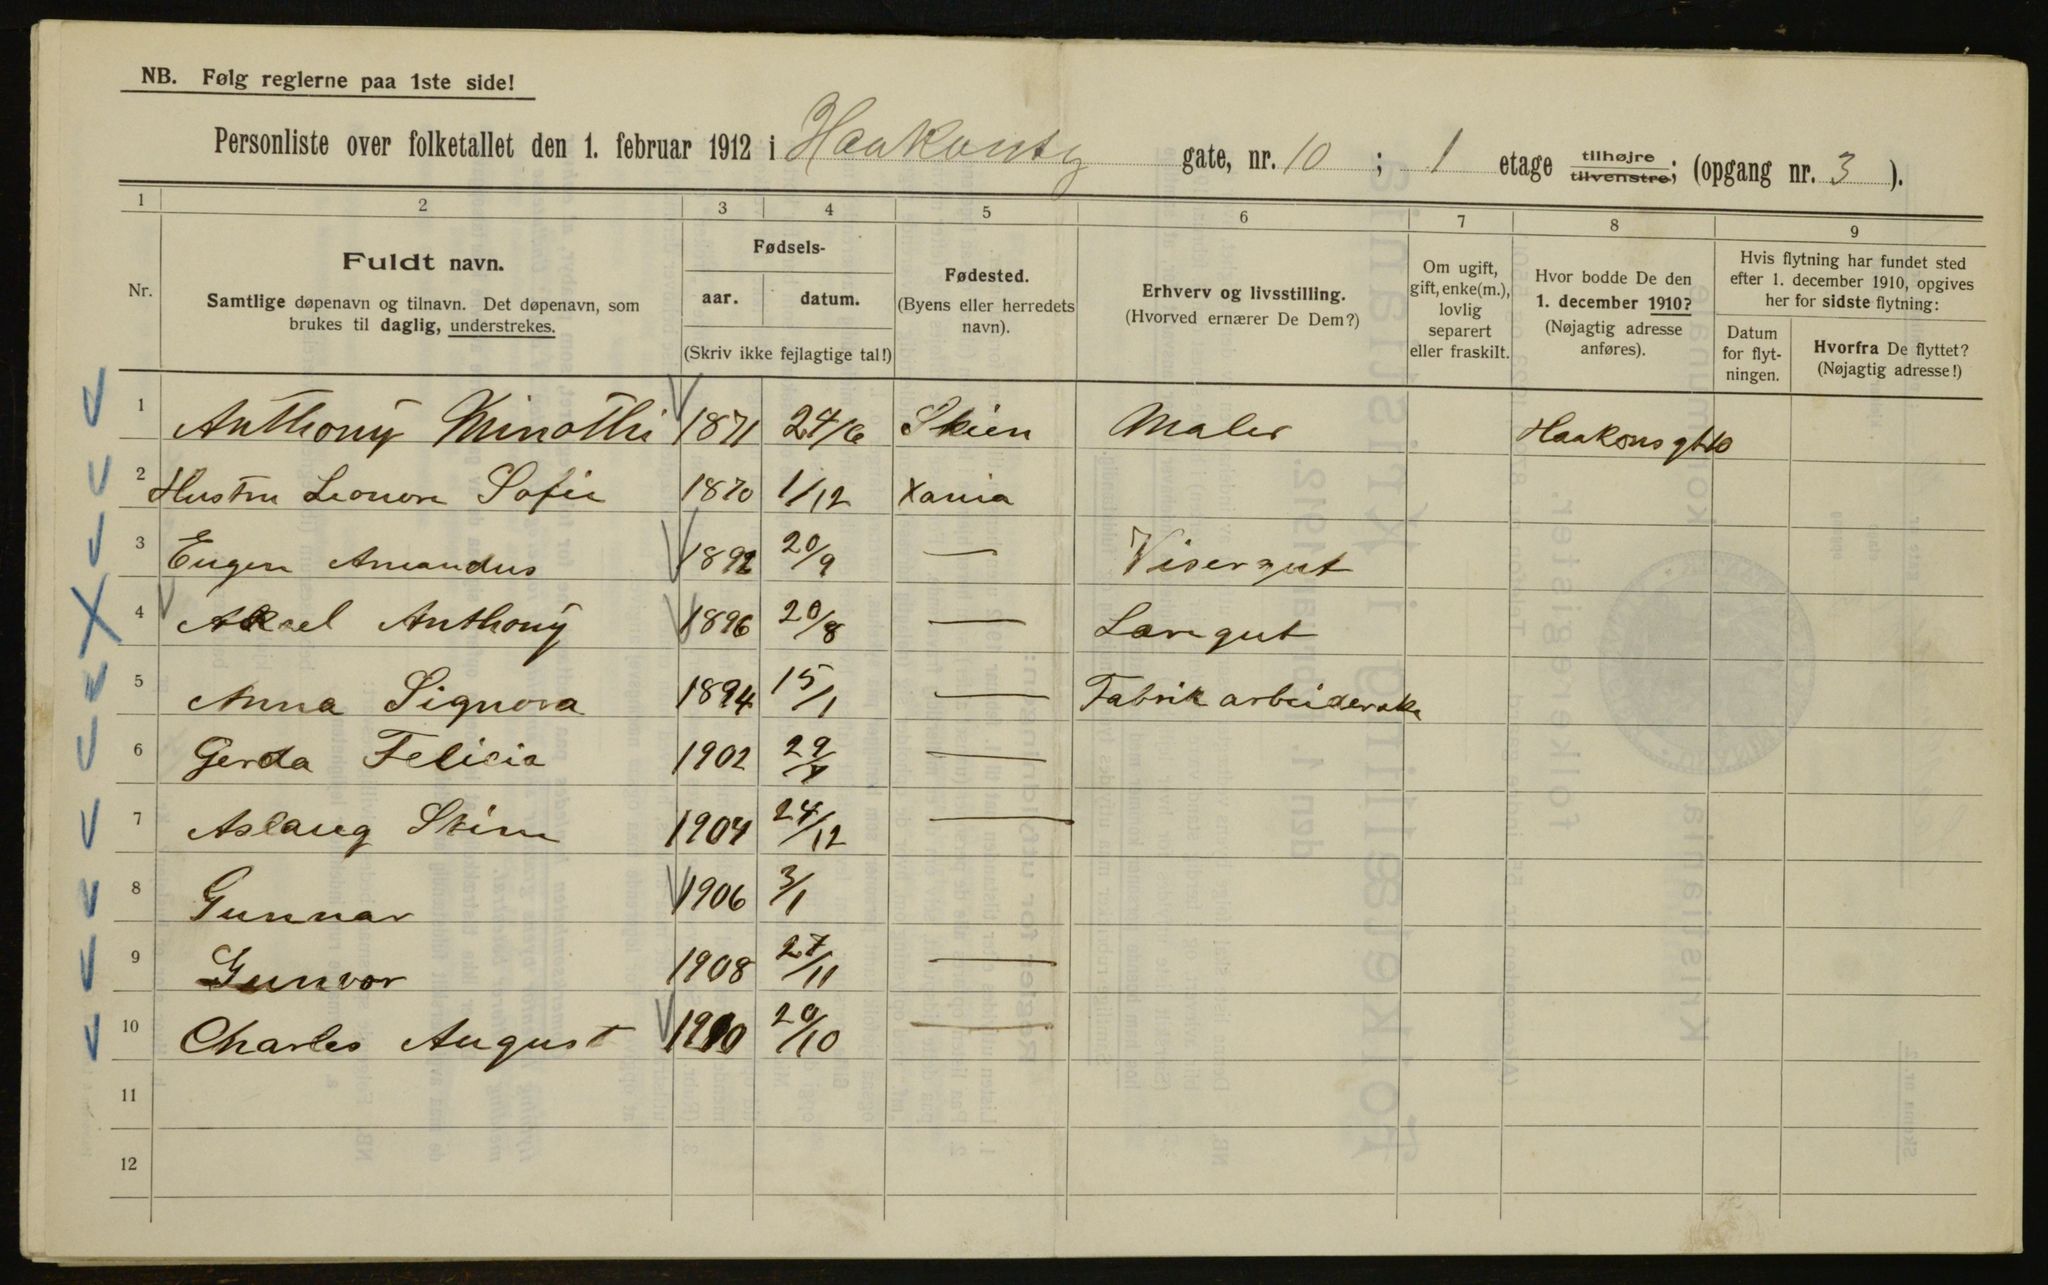 NB. Følg reglerne paa 1ste side!
Personliste over folketallet den 1. februar 1912 i Haakonsg gate, nr. 10 ; 1 etage tilhøjre tilvenstre; (opgang nr. 3 ).
1 2 3 4 5 6 7 8 9
Nr.
Fuldt navn.
Samtlige døpenavn og tilnavn. Det døpenavn, som
brukes til daglig, understrekes.
Fødsels-
aar. datum.
(Skriv ikke fejlagtige tal!)
Fødested.
(Byens eller herredets
navn).
Erhverv og livsstilling.
(Hvorved ernærer De Dem?)
Om ugift,
gift, enke(m.),
lovlig
separert
eller fraskilt.
Hvor bodde De den
1. december 1910?
(Nøjagtig adresse
anføres).
Hvis flytning har fundet sted
efter 1. december 1910, opgives
her for sidste flytning:
Datum
for flyt-
ningen.
Hvorfra De flyttet?
(Nøjagtig adresse!)
1 Anthony Minothi 1871 24/6 Skien Maler Haakonsgt 10
2 Hustru Leonore Sofie 1870 1/12 Xania
3 Eugen Amandus 1892 20/9 — Visergut
4 Aksel Anthony 1896 20/8 — Læregut
5 Anna Signora 1894 15/1 — Fabrik arbeiderske
6 Gerda Felicia 1902 29/ —
7 Aslaug 1904 24/12 —
8 Gunnar 1906 3/1
9 Gunvor 1908 27/11 —
10 Charles August 1910 20/10 —
11
12